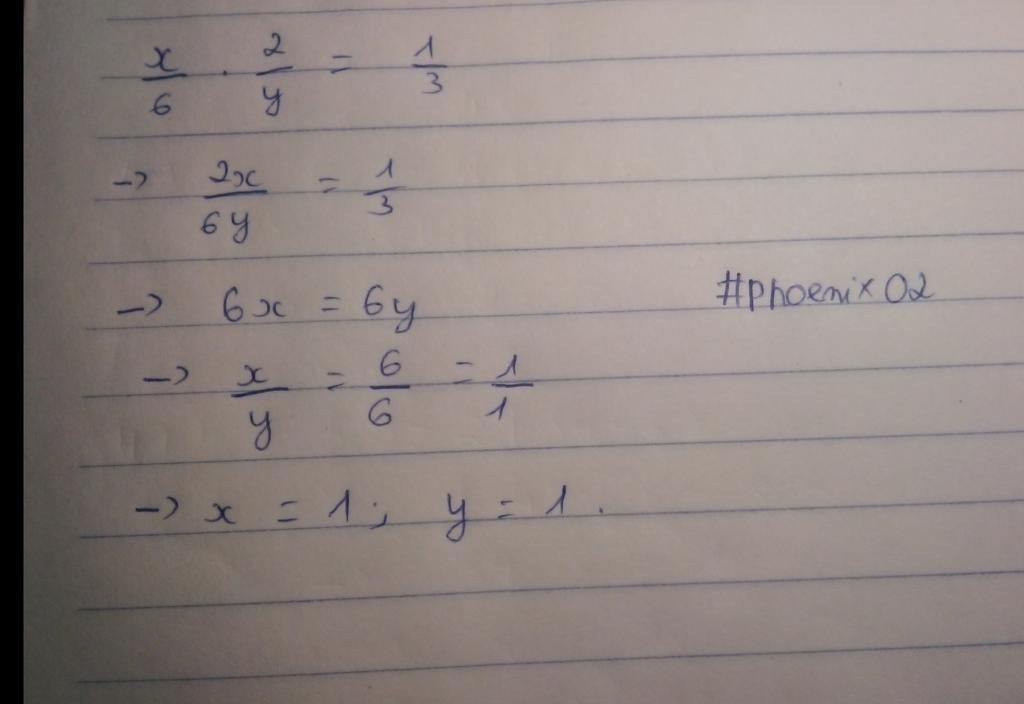 x/6 . 2/y = 1/3
-> 2x/6y = 1/3
-> 6x = 6y
#Phoenix02
-> x/y = 6/6 = 1/1
-> x = 1; y = 1.